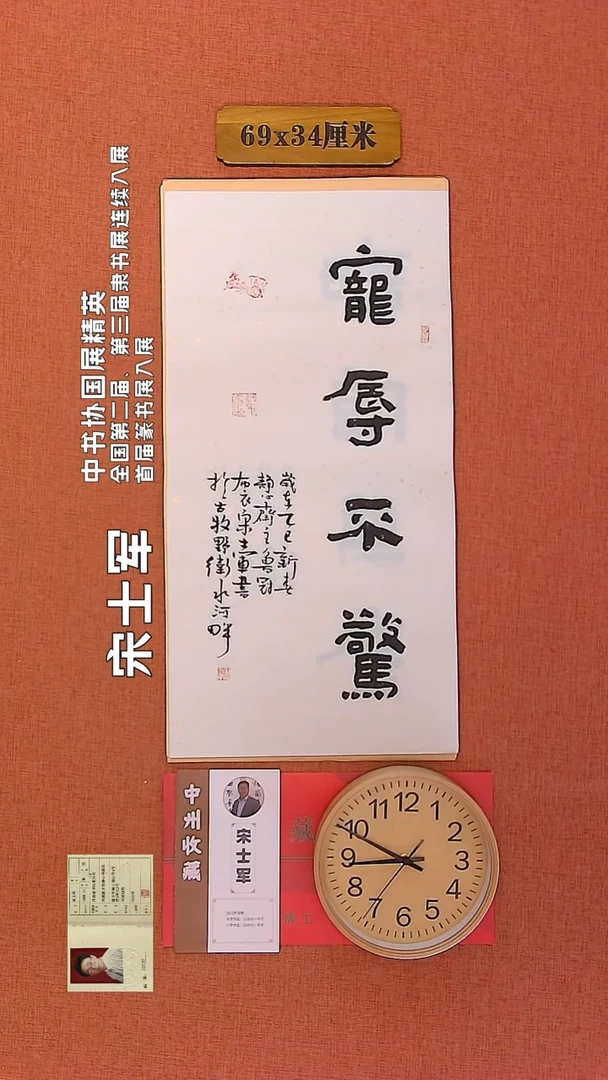 69x34厘米
寵辱不驚
歲在乙巳新春
靜心齋主魯郡
布衣宋士軍書
於古牧野衛水河畔
中书协国展精英
全国第二届、第三届隶书展连续入展
首届篆书展入展
宋士军
中州收藏
宋士军
藏
12
1
2
3
4
5
6
7
8
9
10
11